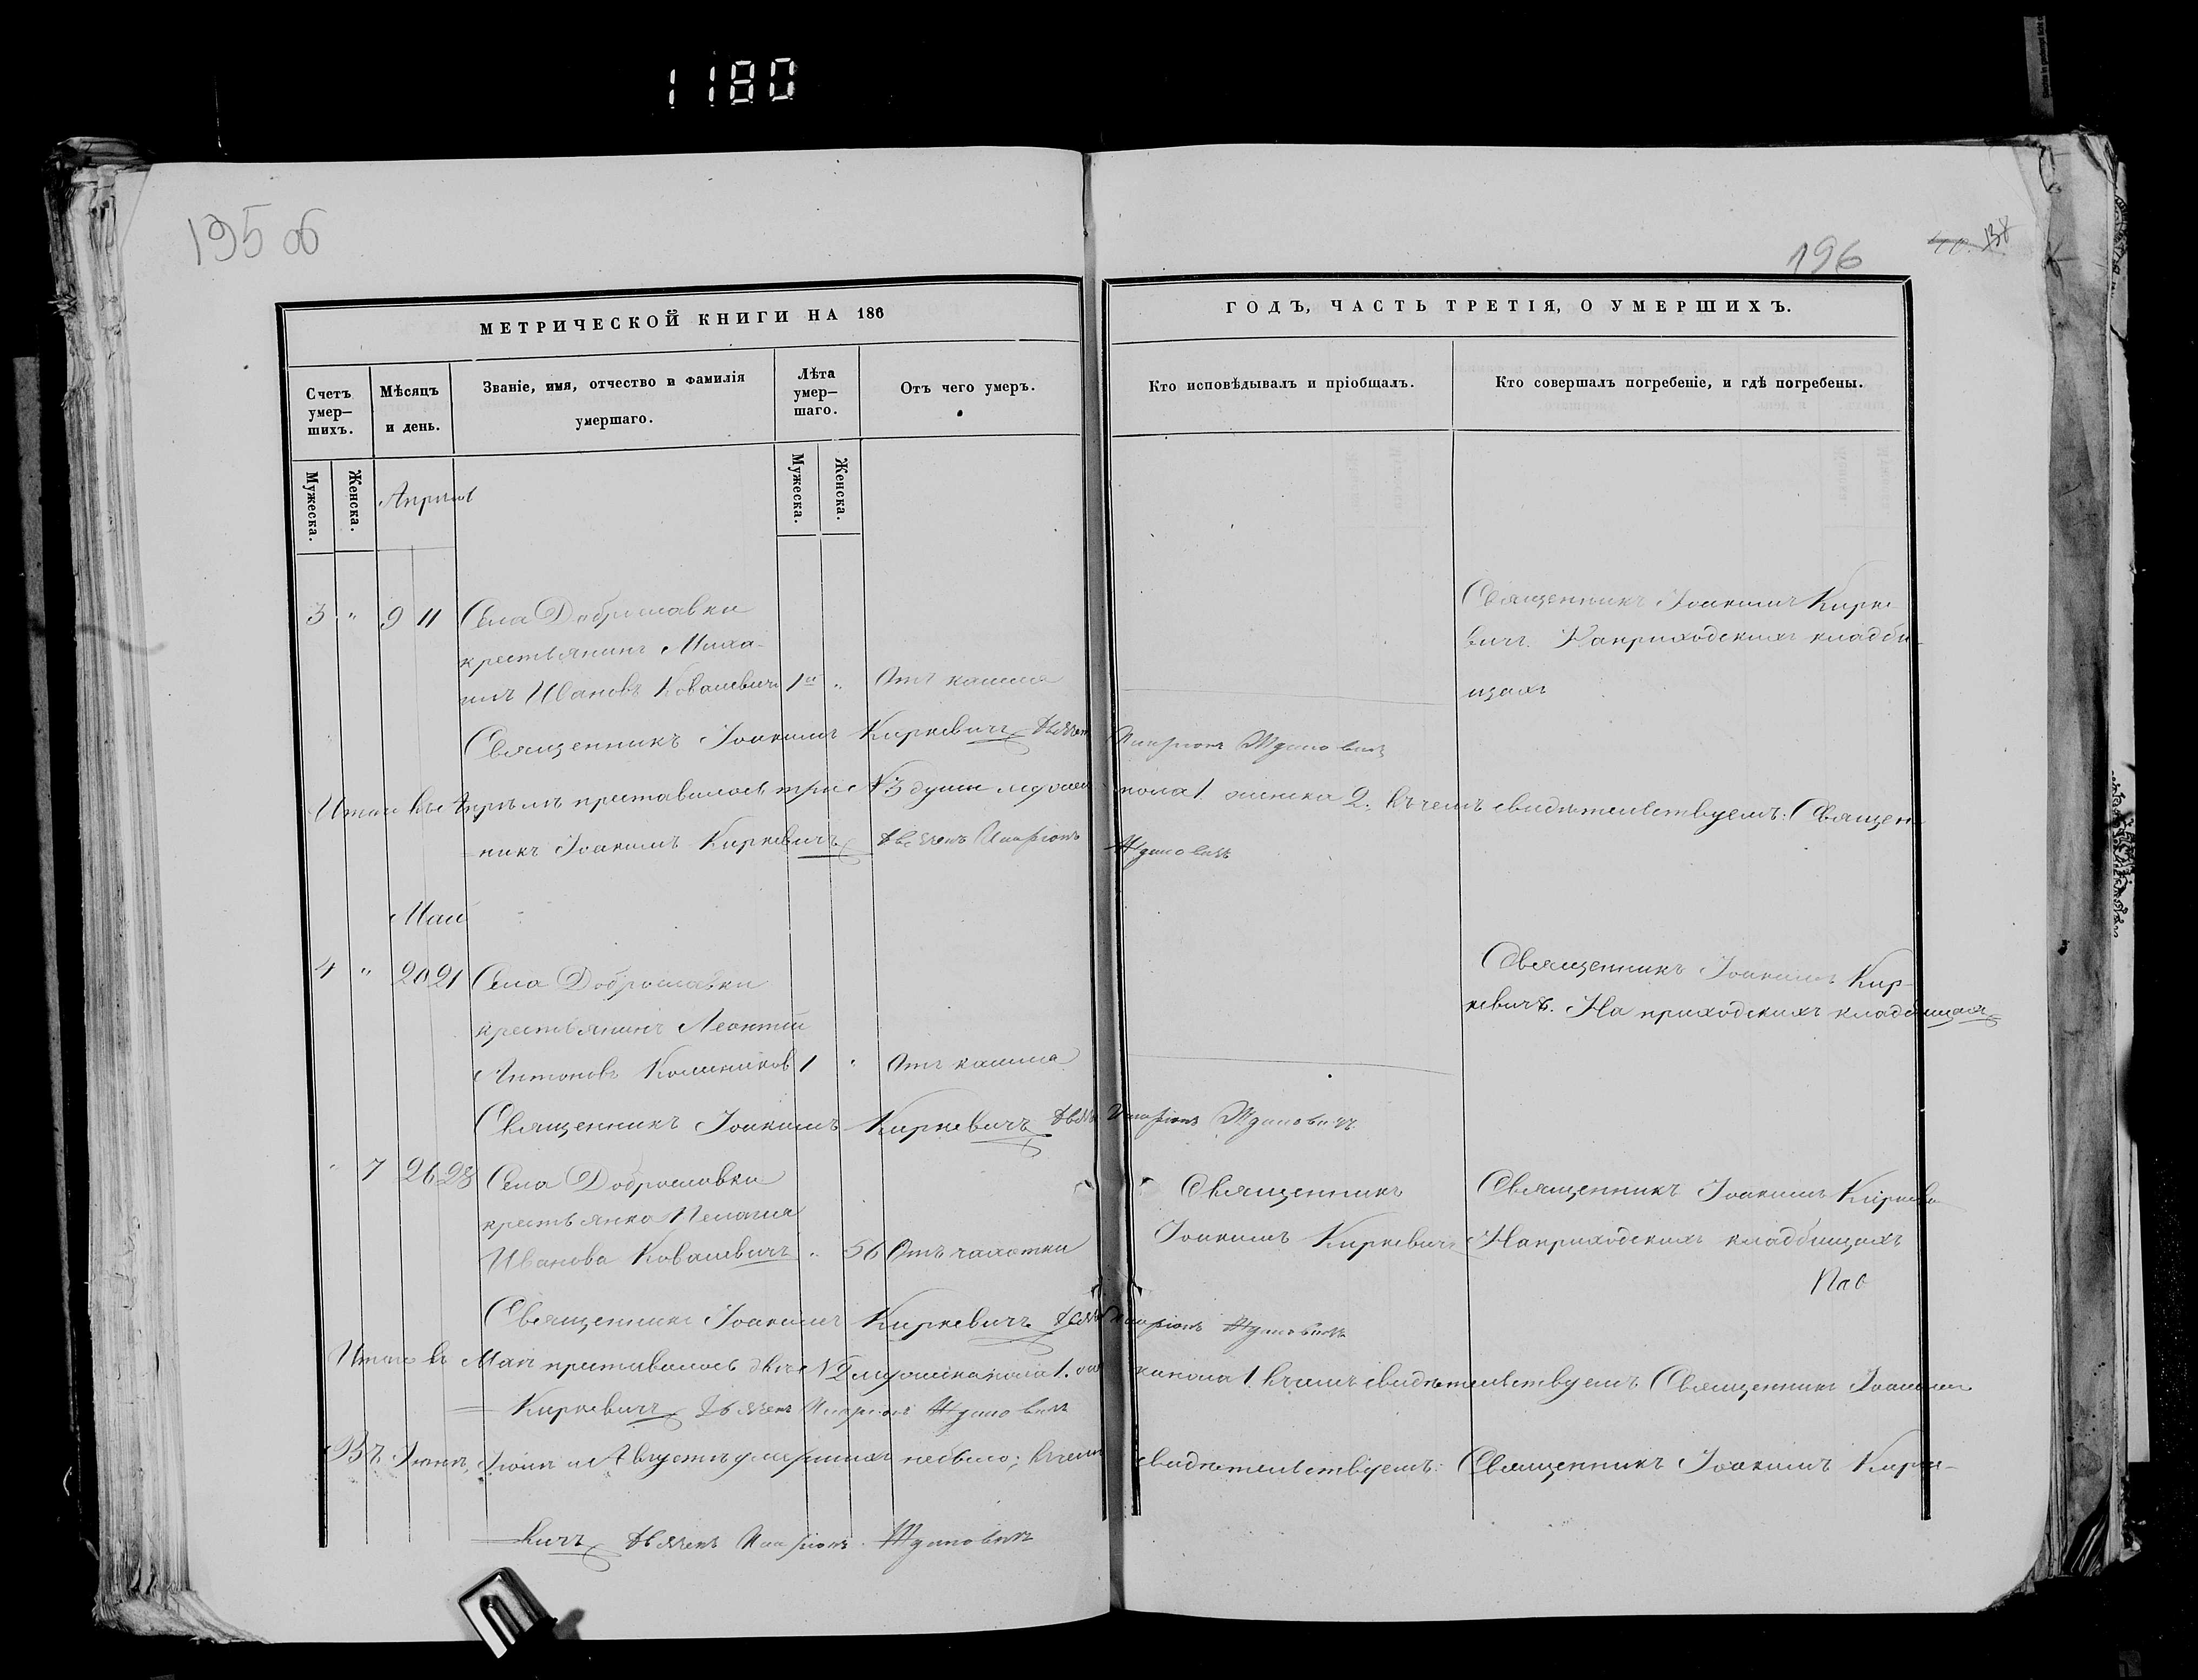 1180
195 об
196
138
МЕТРИЧЕСКОЙ КНИГИ НА 186
ГОДЪ, ЧАСТЬ ТРЕТІЯ, О УМЕРШИХЪ.
Счетъ умер-
шихъ.
Мѣсяцъ
и день.
Званіе, имя, отчество и фамилія
умершаго.
Лѣта
умер-
шаго.
Отъ чего умеръ.
Кто исповѣдывалъ и пріобщалъ.
Кто совершалъ погребеніе, и гдѣ погребены.
Мужеска.
Женска.
Мужеска.
Женска.
Апрель
3 " 9 11 Села Доброславки
крестьянинъ Миха-
илъ Ивановъ Ковалевичъ 1 " Отъ кашля
Священникъ Іоакимъ Кирке-
вичъ. На приходскихъ кладби-
щахъ
Священникъ Іоакимъ Киркевичъ Дьячекъ Иларіонъ Ждановичъ
Итого въ Апрѣлѣ преставилось три №3 души мужеска пола 1. женска 2. въ чемъ свидѣтельствуемъ: Священ-
никъ Іоакимъ Киркевичъ Дьячекъ Иларіонъ Ждановичъ
Май
4 " 20 21 Села Доброславки
крестьянинъ Леонтій
Антоновъ 1 " Отъ кашля
Священникъ Іоакимъ Кир-
кевичъ. На приходскихъ кладбищахъ
Священникъ Іоакимъ Киркевичъ Дьячекъ Иларіонъ Ждановичъ
" 7 26 28 Села Доброславки
крестьянка Пелагія
Иванова Ковалевичъ " 56 Отъ чахотки
Священникъ
Іоакимъ Киркевичъ
Священникъ Іоакимъ Киркеви
На приходскихъ кладбищахъ
Священникъ Іоакимъ Киркевичъ Дьячекъ Иларіонъ Ждановичъ
Итого въ Маѣ преставилось двѣ №2 мужеска пола 1. женска пола 1. въ чемъ свидѣтельствуемъ Священникъ Іоакимъ
Киркевичъ Дьячекъ Иларіонъ Ждановичъ
Въ Іюнѣ, Іюлѣ и Августѣ умершихъ небыло; въ чемъ свидѣтельствуемъ: Священникъ Іоакимъ Кирке-
вичъ Дьячекъ Иларіонъ Ждановичъ